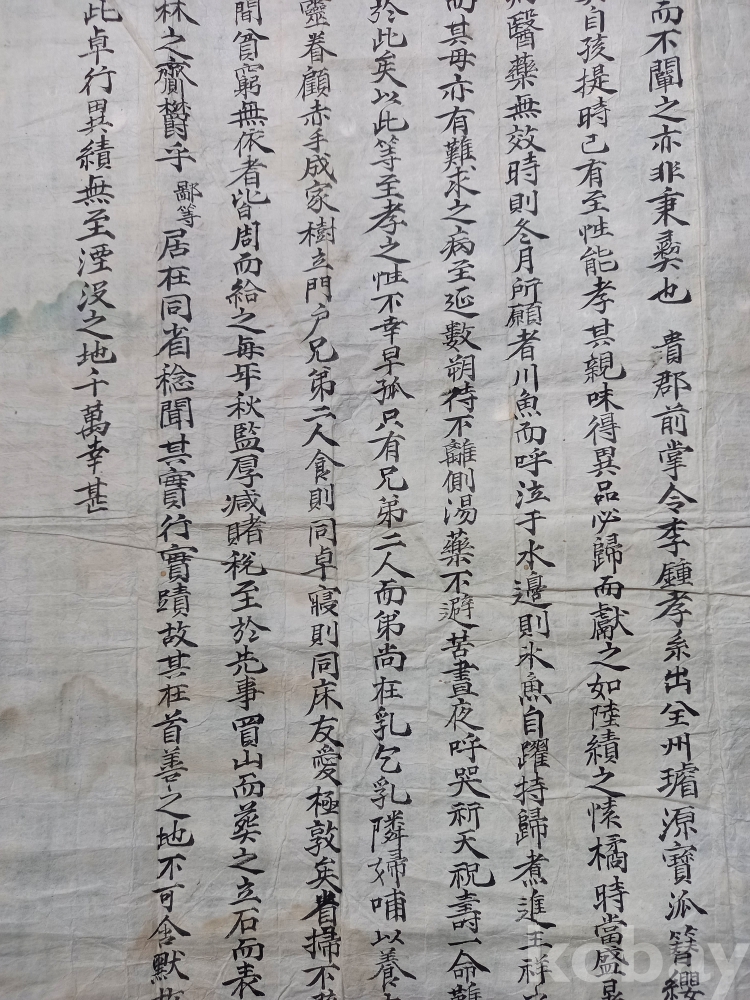 而不闡之亦非秉彛也 貴郡前掌令李鍾孝系出全州璿源寶派簪纓
自孩提時已有至性能孝其親味得異品必歸而獻之如陸績之懷橘時當盛
醫藥無效時則冬月所願者川魚而呼泣于水邊則氷魚自躍持歸煮進王祥
而其母亦有難求之病至延數朔侍不離側湯藥不避苦晝夜呼哭祈天祝壽一命難
於此矣以此等至孝之性不幸早孤只有兄弟二人而弟尚在乳乞乳隣婦哺以養
靈眷顧赤手成家樹立門戶兄弟二人食則同卓寢則同床友愛極敦矣省掃不
間貧窮無依者皆周而給之每年秋監厚减賭稅至於先事買山而葬之立石而表
林之齎欝乎 鄙等居在同省稔聞其實行實蹟故其在首善之地不可含默
此卓行異績無至湮沒之地千萬幸甚
kobay